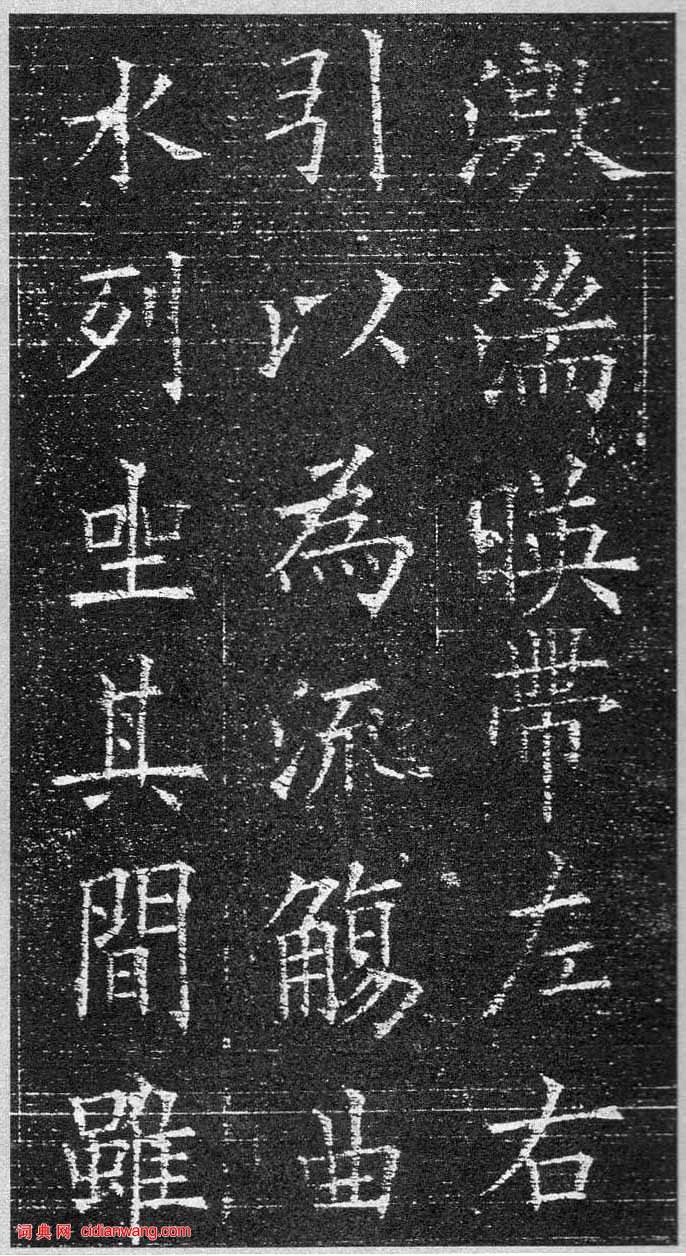 激湍暎帶左右
引以為流觴曲
水列坐其間雖
词典网 cidianwang.com